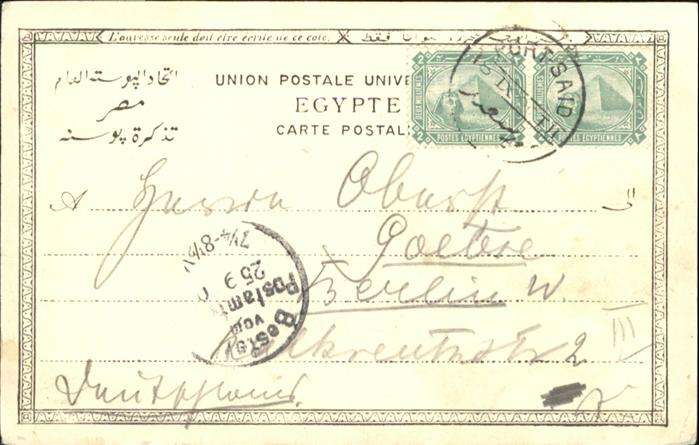 L'adresse seule doit être écrite de ce côté.
فقط
اتحاد البوسته العام
مصر
تذكرة بوسته
UNION POSTALE UNIVE
EGYPTE
CARTE POSTALE
2 POSTES EGYPTIENNES
POSTES EGYPTIENNES
PORT-SAID
A
Herrn Oberst
الى
Goetere
Berlin W.
2
III
Bestellt
vom
Postamte
25 9
7¼-8½ V
Deutschland.